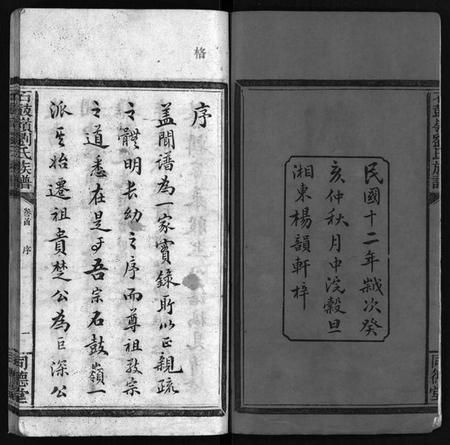 民國十二年歲次癸
亥仲秋月中浣穀旦
湘東楊韻軒梓
石鼓嶺劉氏族譜
同德堂
格
序
蓋聞譜為一家實錄所以正親疏
之體明長幼之序而尊祖敬宗
之道悉在是乎吾宗石鼓嶺一
派其始遷祖貴楚公為巨深公
石鼓嶺劉氏族譜
卷首
序
一
同德堂